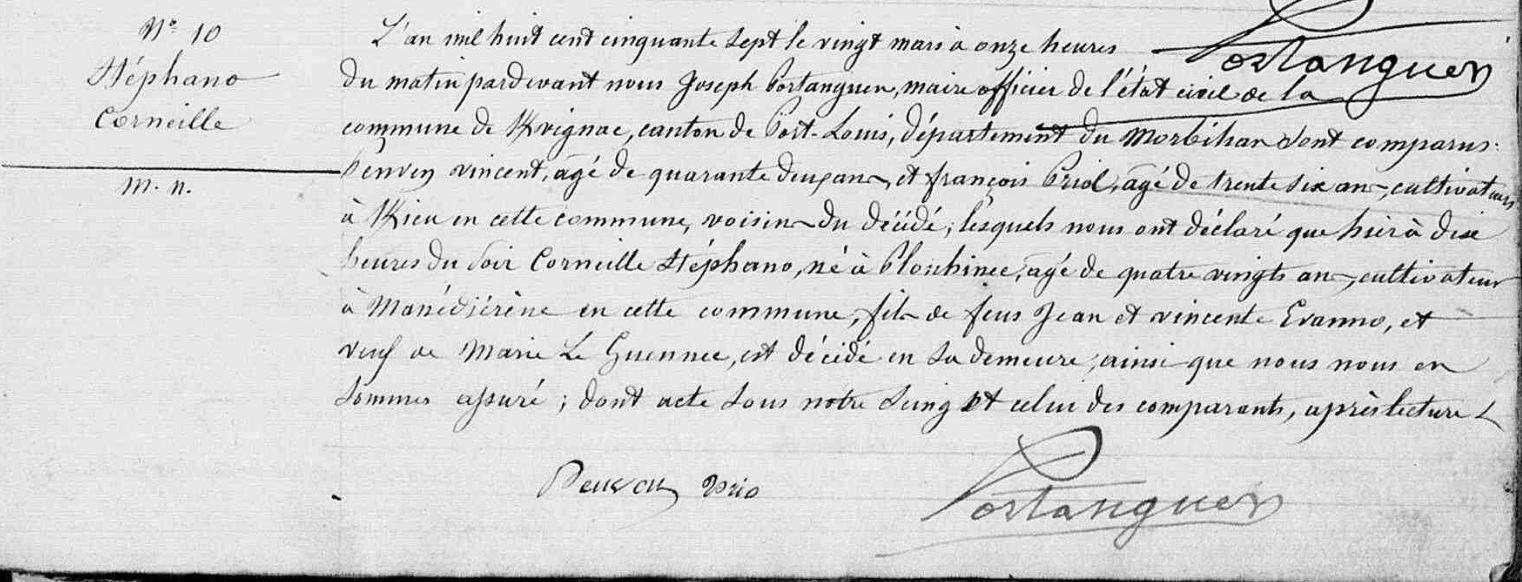 N° 10
Stéphano
Corneille
m. n.
Portanguen
L'an mil huit cent cinquante sept le vingt mars à onze heures
du matin pardevant nous Joseph Portanguen, maire officier de l'état civil de la
commune de Kvignac, canton de Port-Louis, département du Morbihan sont comparus:
vincent, agé de quarante deux ans, et françois Priol, agé de trente six ans, cultivateurs
à en cette commune, voisins du décédé; lesquels nous ont déclaré que hier à dix
heures du soir Corneille Stéphano, né à Plouhinec, agé de quatre vingts ans, cultivateur
à en cette commune, fils de feus Jean et vincente Evanno, et
veuf de Marie Le Guennec, est décédé en sa demeure, ainsi que nous nous en
sommes assuré; dont acte sous notre seing et celui des comparants, après lecture
Portanguen